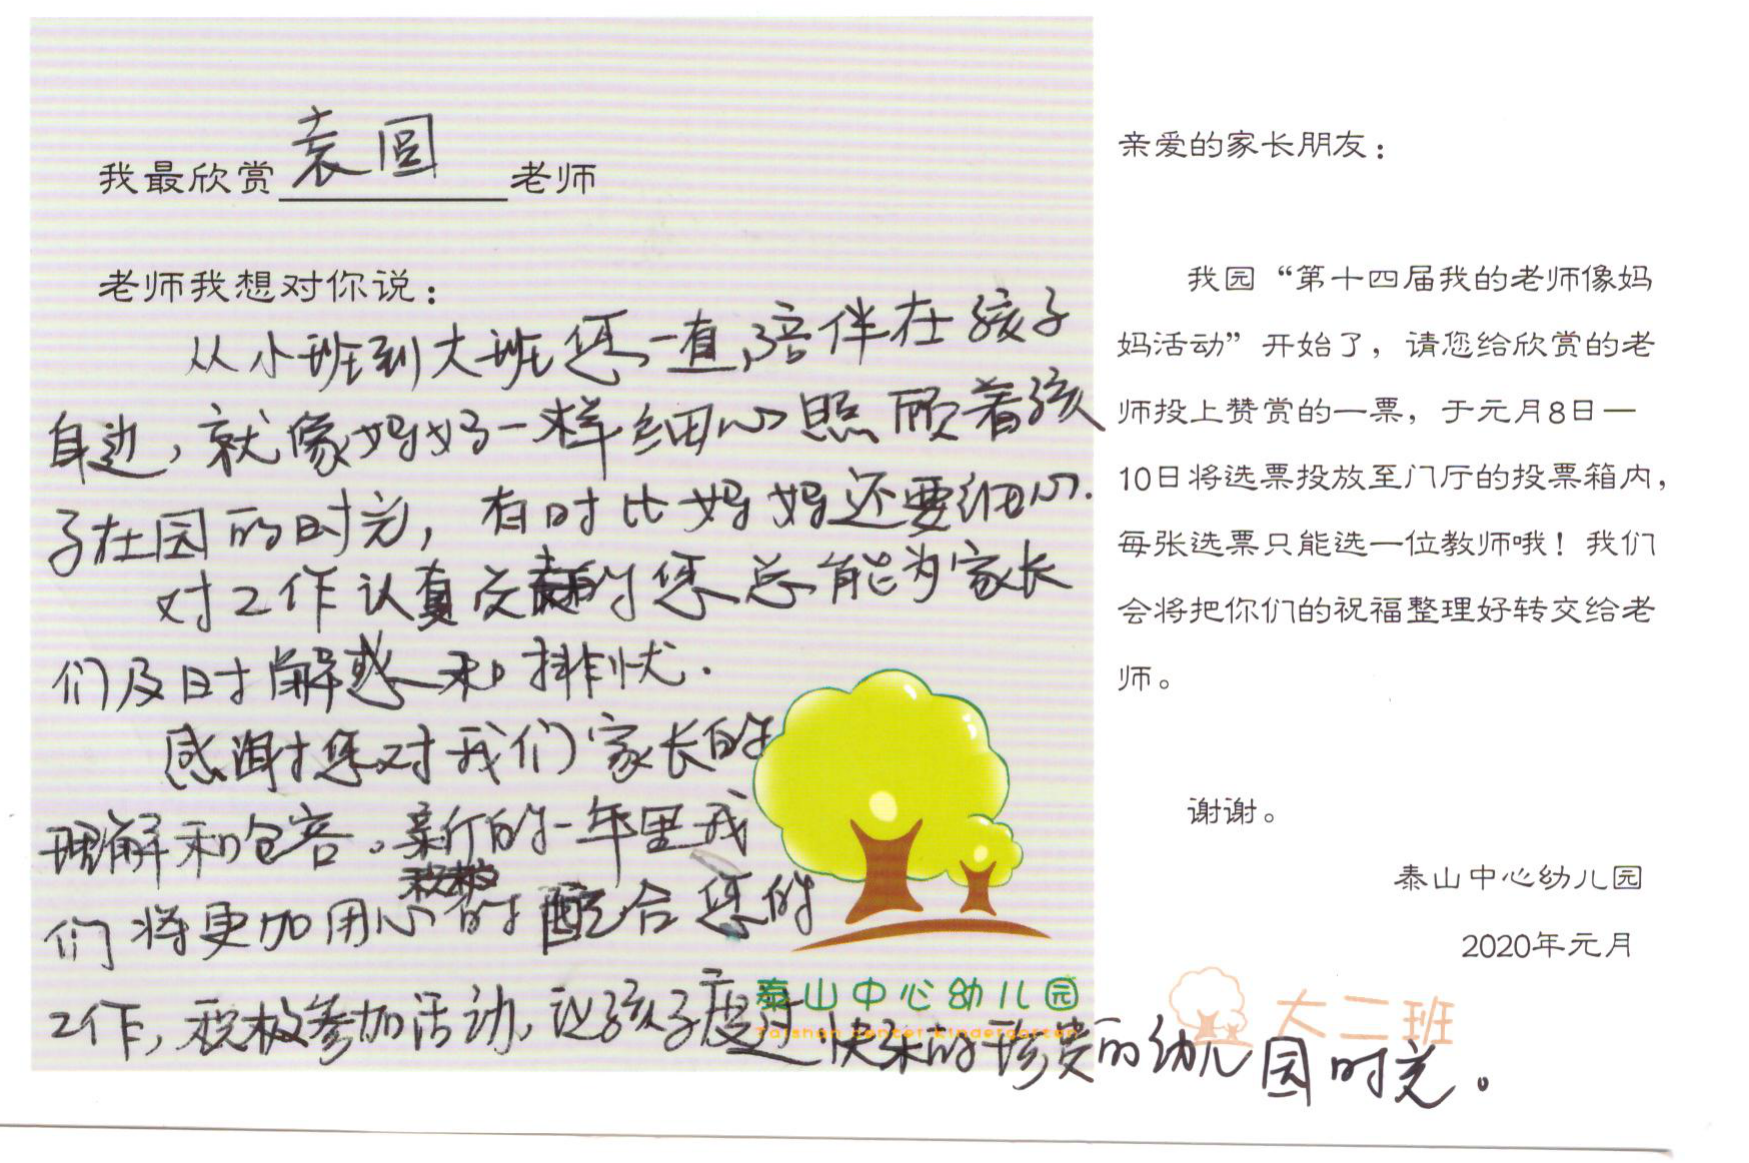 我最欣赏 袁圆 老师
老师我想对你说：
从小班到大班您一直陪伴在孩子
身边，就像妈妈一样细心照顾着孩
子在园的时光，有时比妈妈还要细心.
对工作认真负责的您总能为家长
们及时解惑和排忧.
感谢您对我们家长的
理解和包容。新的一年里我
们将更加用心积极的配合您的
工作，积极参加活动，让孩子度过快乐的珍贵的幼儿园时光。
泰山中心幼儿园
Taishan center kindergarten
亲爱的家长朋友：
我园“第十四届我的老师像妈
妈活动”开始了，请您给欣赏的老
师投上赞赏的一票，于元月8日—
10日将选票投放至门厅的投票箱内，
每张选票只能选一位教师哦！我们
会将把你们的祝福整理好转交给老
师。
谢谢。
泰山中心幼儿园
2020年元月
大二班